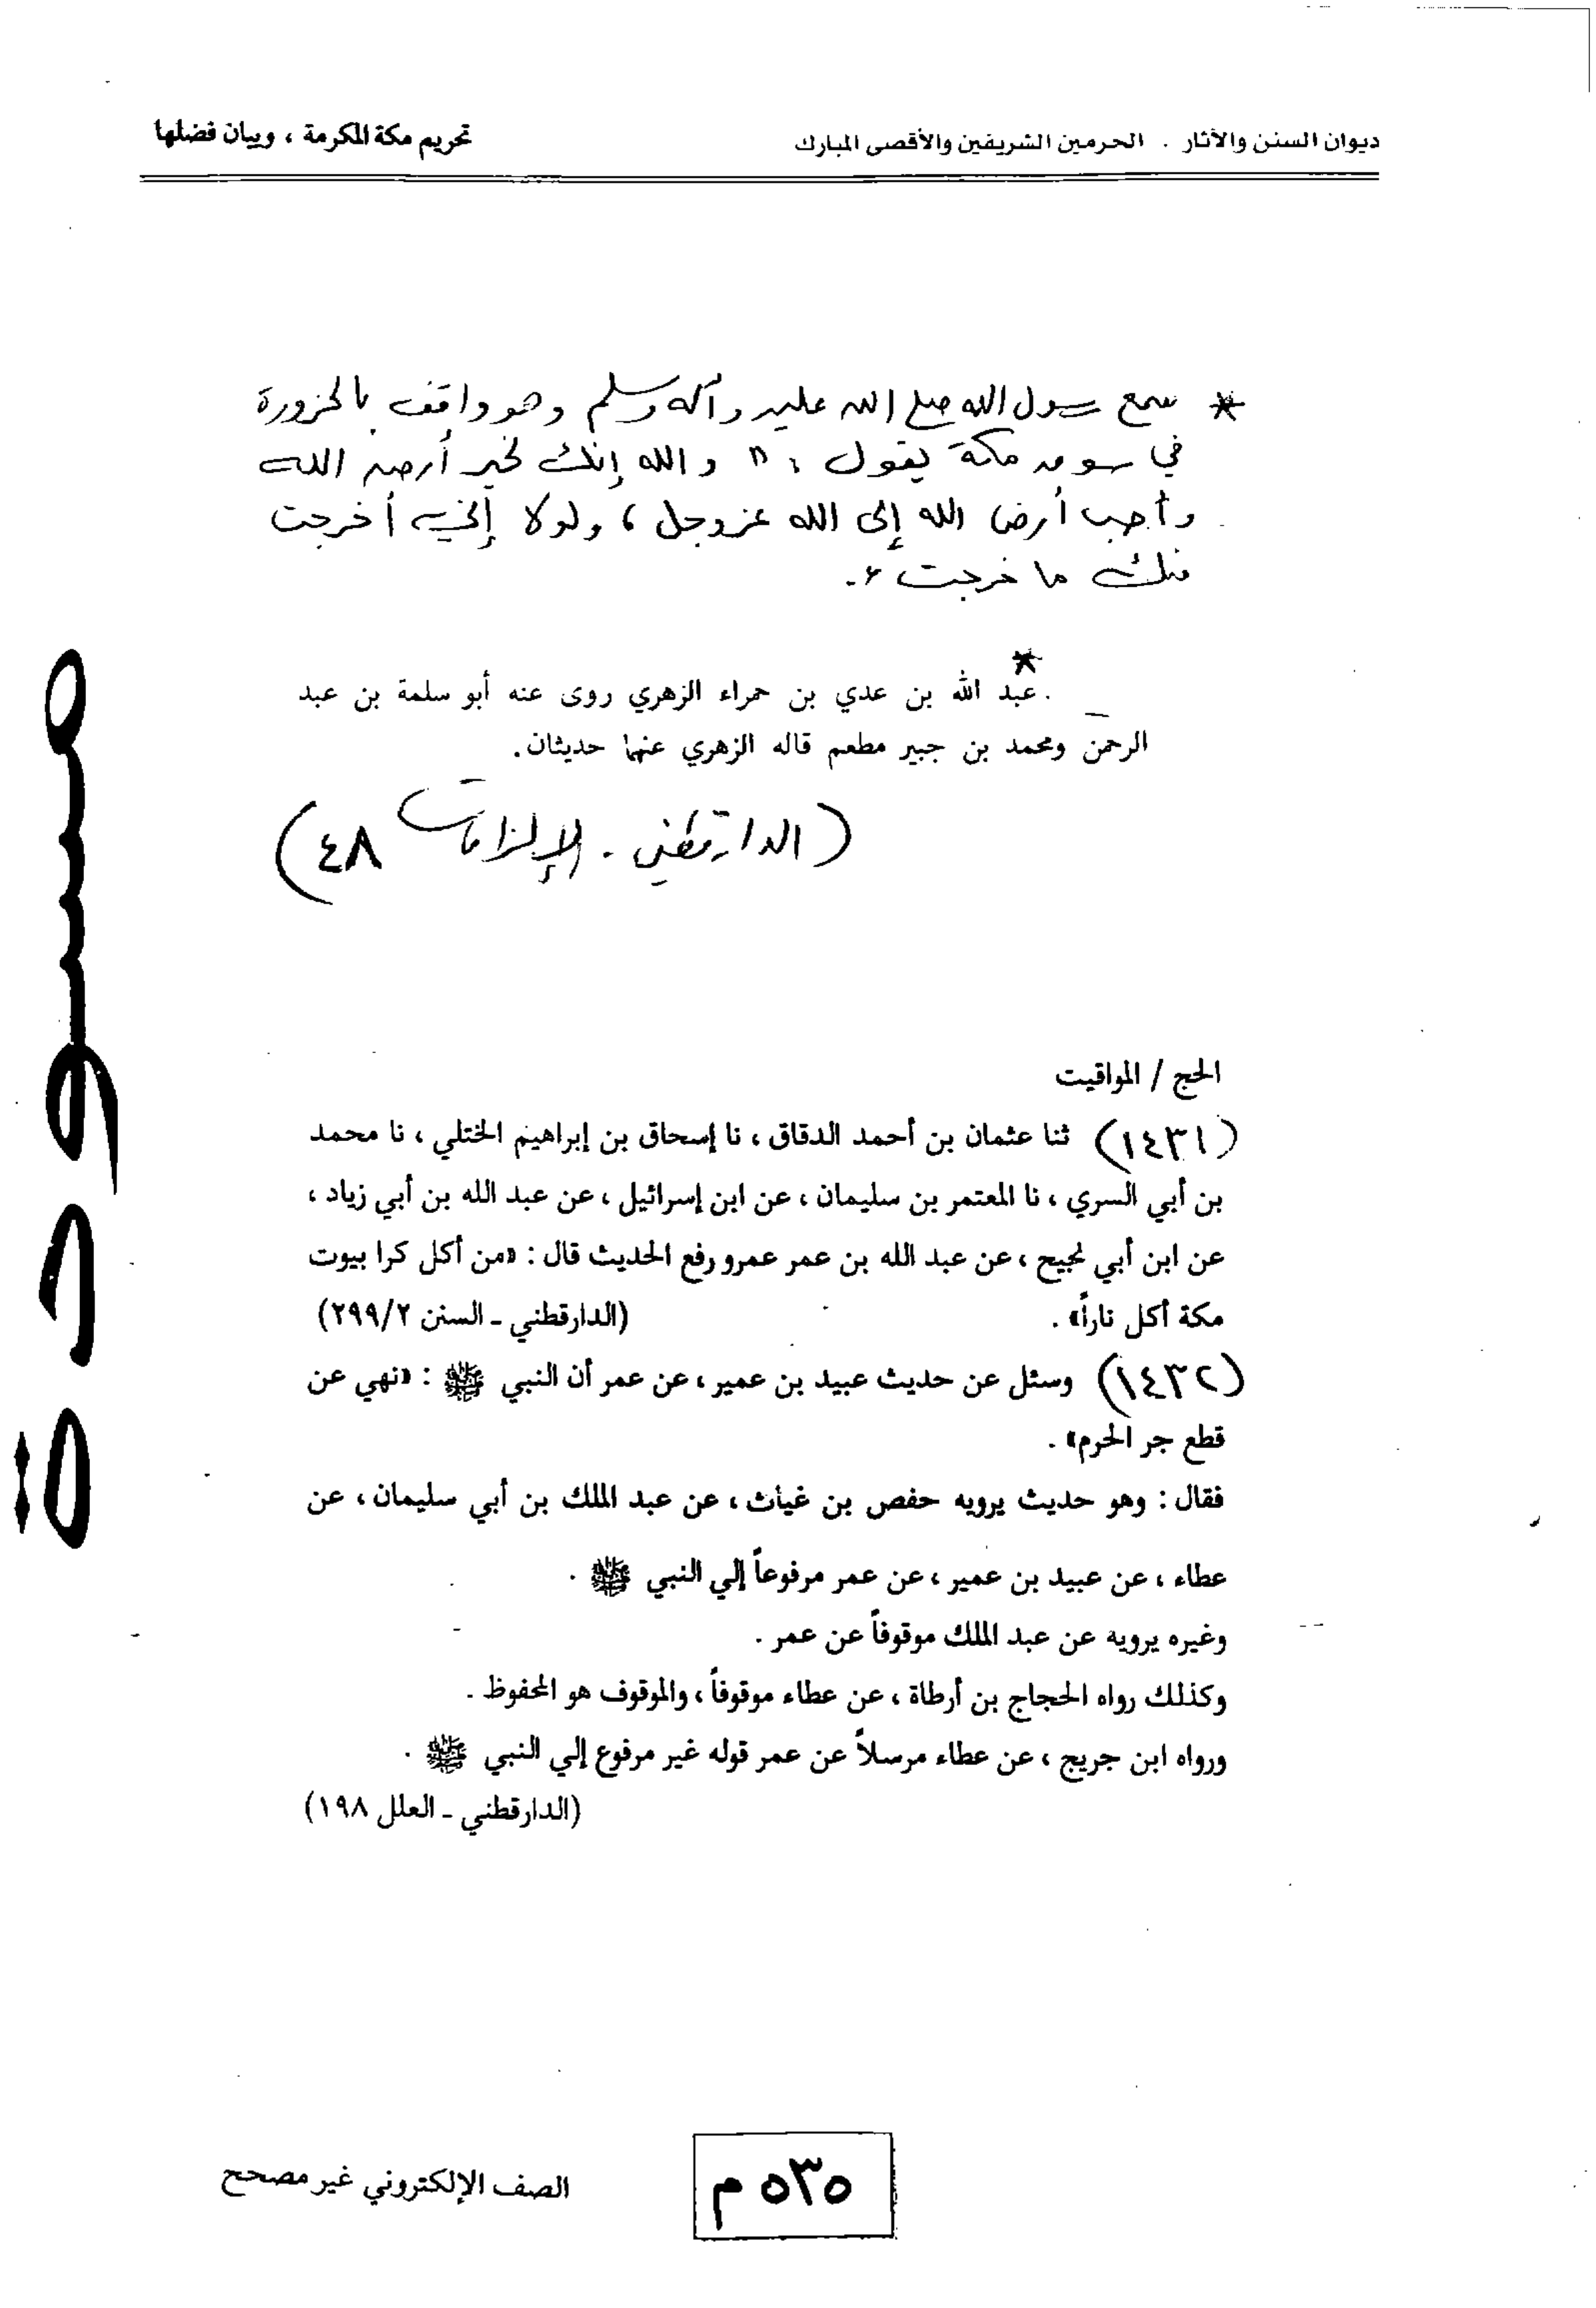 ديوان السنن والآثار . الحرمين الشريفين والأقصى المبارك
تحريم مكة المكرمة ، وبيان فضلها
* سمع رسول الله صلى الله عليه وآله وسلم وهو واقف بالحزورة
في سوق مكة يقول : " والله إنك لخير أرض الله
وأحب أرض الله إلى الله عز وجل ، ولولا إني أخرجت
منك ما خرجت ".
*
. عبد الله بن عدي بن حمراء الزهري روى عنه أبو سلمة بن عبد
الرحمن ومحمد بن جبير مطعم قاله الزهري عنهما حديثان.
(الدارقطني - الإلزامات ٤٨)
الحج / المواقيت
(١٤٣١) ثنا عثمان بن أحمد الدقاق ، نا إسحاق بن إبراهيم الختلي ، نا محمد
بن أبي السري ، نا المعتمر بن سليمان ، عن ابن إسرائيل ، عن عبد الله بن أبي زياد ،
عن ابن أبي نجيح ، عن عبد الله بن عمر عمرو رفع الحديث قال : «من أكل كرا بيوت
مكة أكل ناراً» .
(الدارقطني - السنن ٢/٢٩٩)
(١٤٣٢) وسئل عن حديث عبيد بن عمير ، عن عمر أن النبي ﷺ : «نهي عن
قطع جر الحرم» .
فقال : وهو حديث يرويه حفص بن غياث ، عن عبد الملك بن أبي سليمان ، عن
عطاء ، عن عبيد بن عمير ، عن عمر مرفوعاً إلي النبي ﷺ .
وغيره يرويه عن عبد الملك موقوفاً عن عمر .
وكذلك رواه الحجاج بن أرطاة ، عن عطاء موقوفاً ، والموقوف هو المحفوظ .
ورواه ابن جريج ، عن عطاء مرسلاً عن عمر قوله غير مرفوع إلي النبي ﷺ .
(الدارقطني - العلل ١٩٨)
مسودة
٥٣٥ م
الصف الإلكتروني غير مصحح